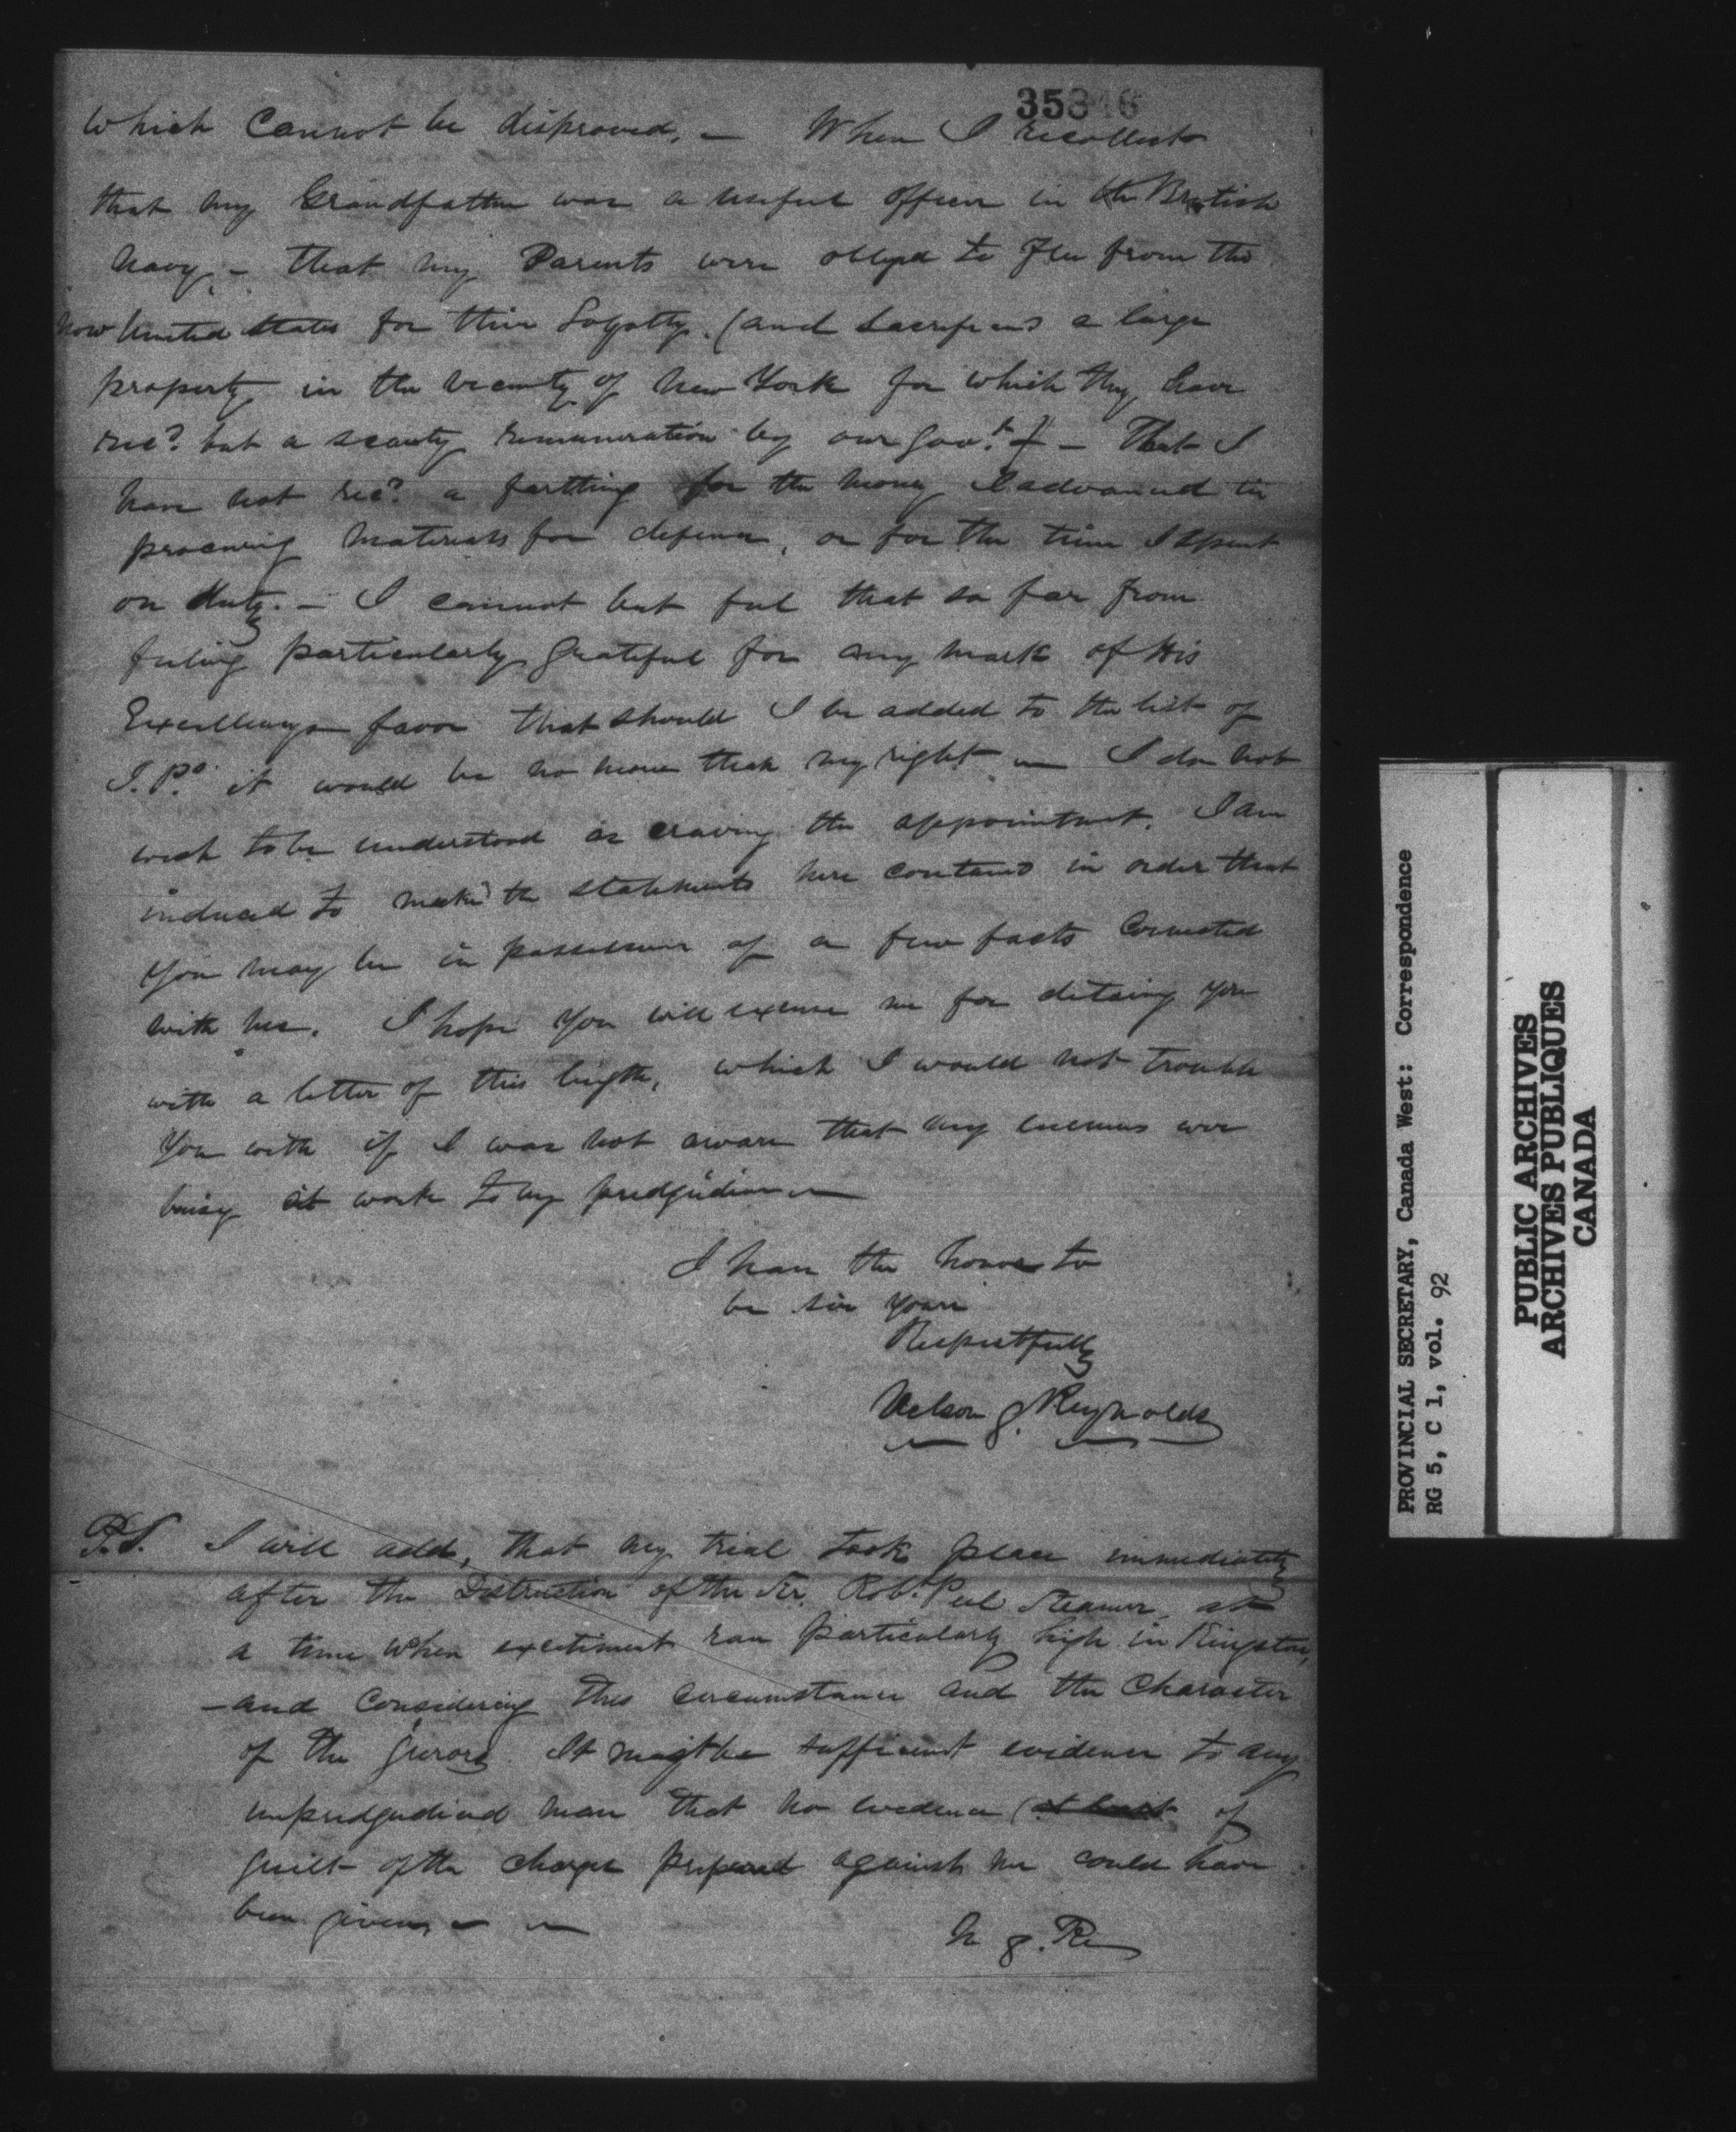 35346
which cannot be disproved, — When I recollect
that my Grandfather was a useful officer in the British
Navy, - that my Parents were obliged to Flee from the
now United States for their Loyalty. (and sacrificed a large
property in the vicinity of New York for which they have
recd. but a scanty remuneration by our Govt.) — That I
have not recd. a farthing for the money I advanced in
procuring materials for defence, or for the time I spent
on duty. — I cannot but feel that so far from
feeling particularly grateful for any mark of His
Excellencys favor that should I be added to the list of
J.Ps. it would be no more than my right — I do not
wish to be understood as craving the appointment. I am
induced to make the statements here contained in order that
you may be in possession of a few facts connected
with me. I hope you will excuse me for detaing you
with a letter of this length, which I would not trouble
you with if I was not aware that my enemies were
buisy at work to my predgudice —
I have the honor to
be sir yours
Respectfully
Nelson G. Reynolds
P.S. I will add, that my trial took place immediately
after the Distruction of the Sr. Robt. Peel Steamer at
a time when excitiment ran particularly high in Kingston,
—and considering this circumstance and the character
of the jurors. It might be sufficient evidence to any
unpredgudiced man that no evidence (at least of
guilt of the charge prefered against me could have
been given, — —
N G. Re
PROVINCIAL SECRETARY, Canada West: Correspondence
RG 5, C 1, vol. 92
PUBLIC ARCHIVES
ARCHIVES PUBLIQUES
CANADA